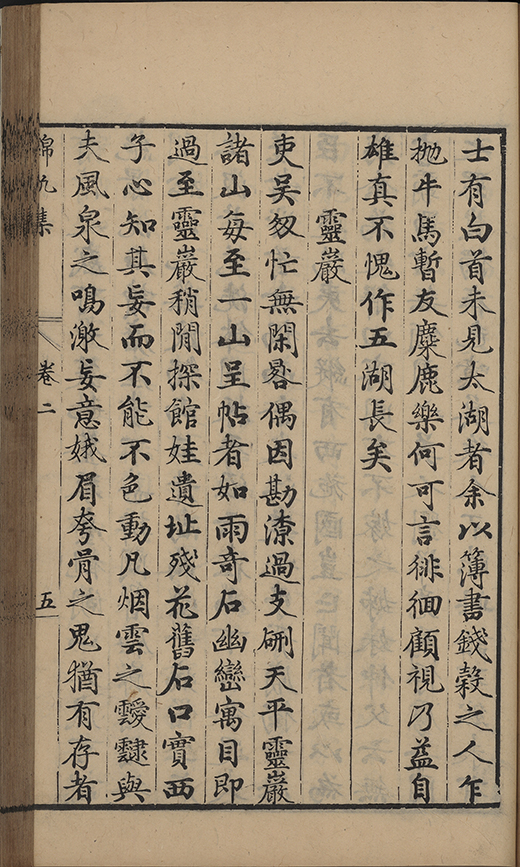 士有白首未見太湖者余以簿書錢穀之人乍
拋牛馬暫友麋鹿樂何可言徘徊顧視乃益自
雄真不愧作五湖長矣
靈巖
吏吴怱忙無閑晷偶因勘潦過支硎天平靈巖
諸山每至一山呈帖者如雨奇石幽巒寓目即
過至靈巖稍閒探館娃遺址殘花舊石口實西
子心知其妄而不能不色動凡烟雲之靉靆與
夫風泉之鳴激妄意娥眉夸骨之鬼猶有存者
錦帆集
卷二
五